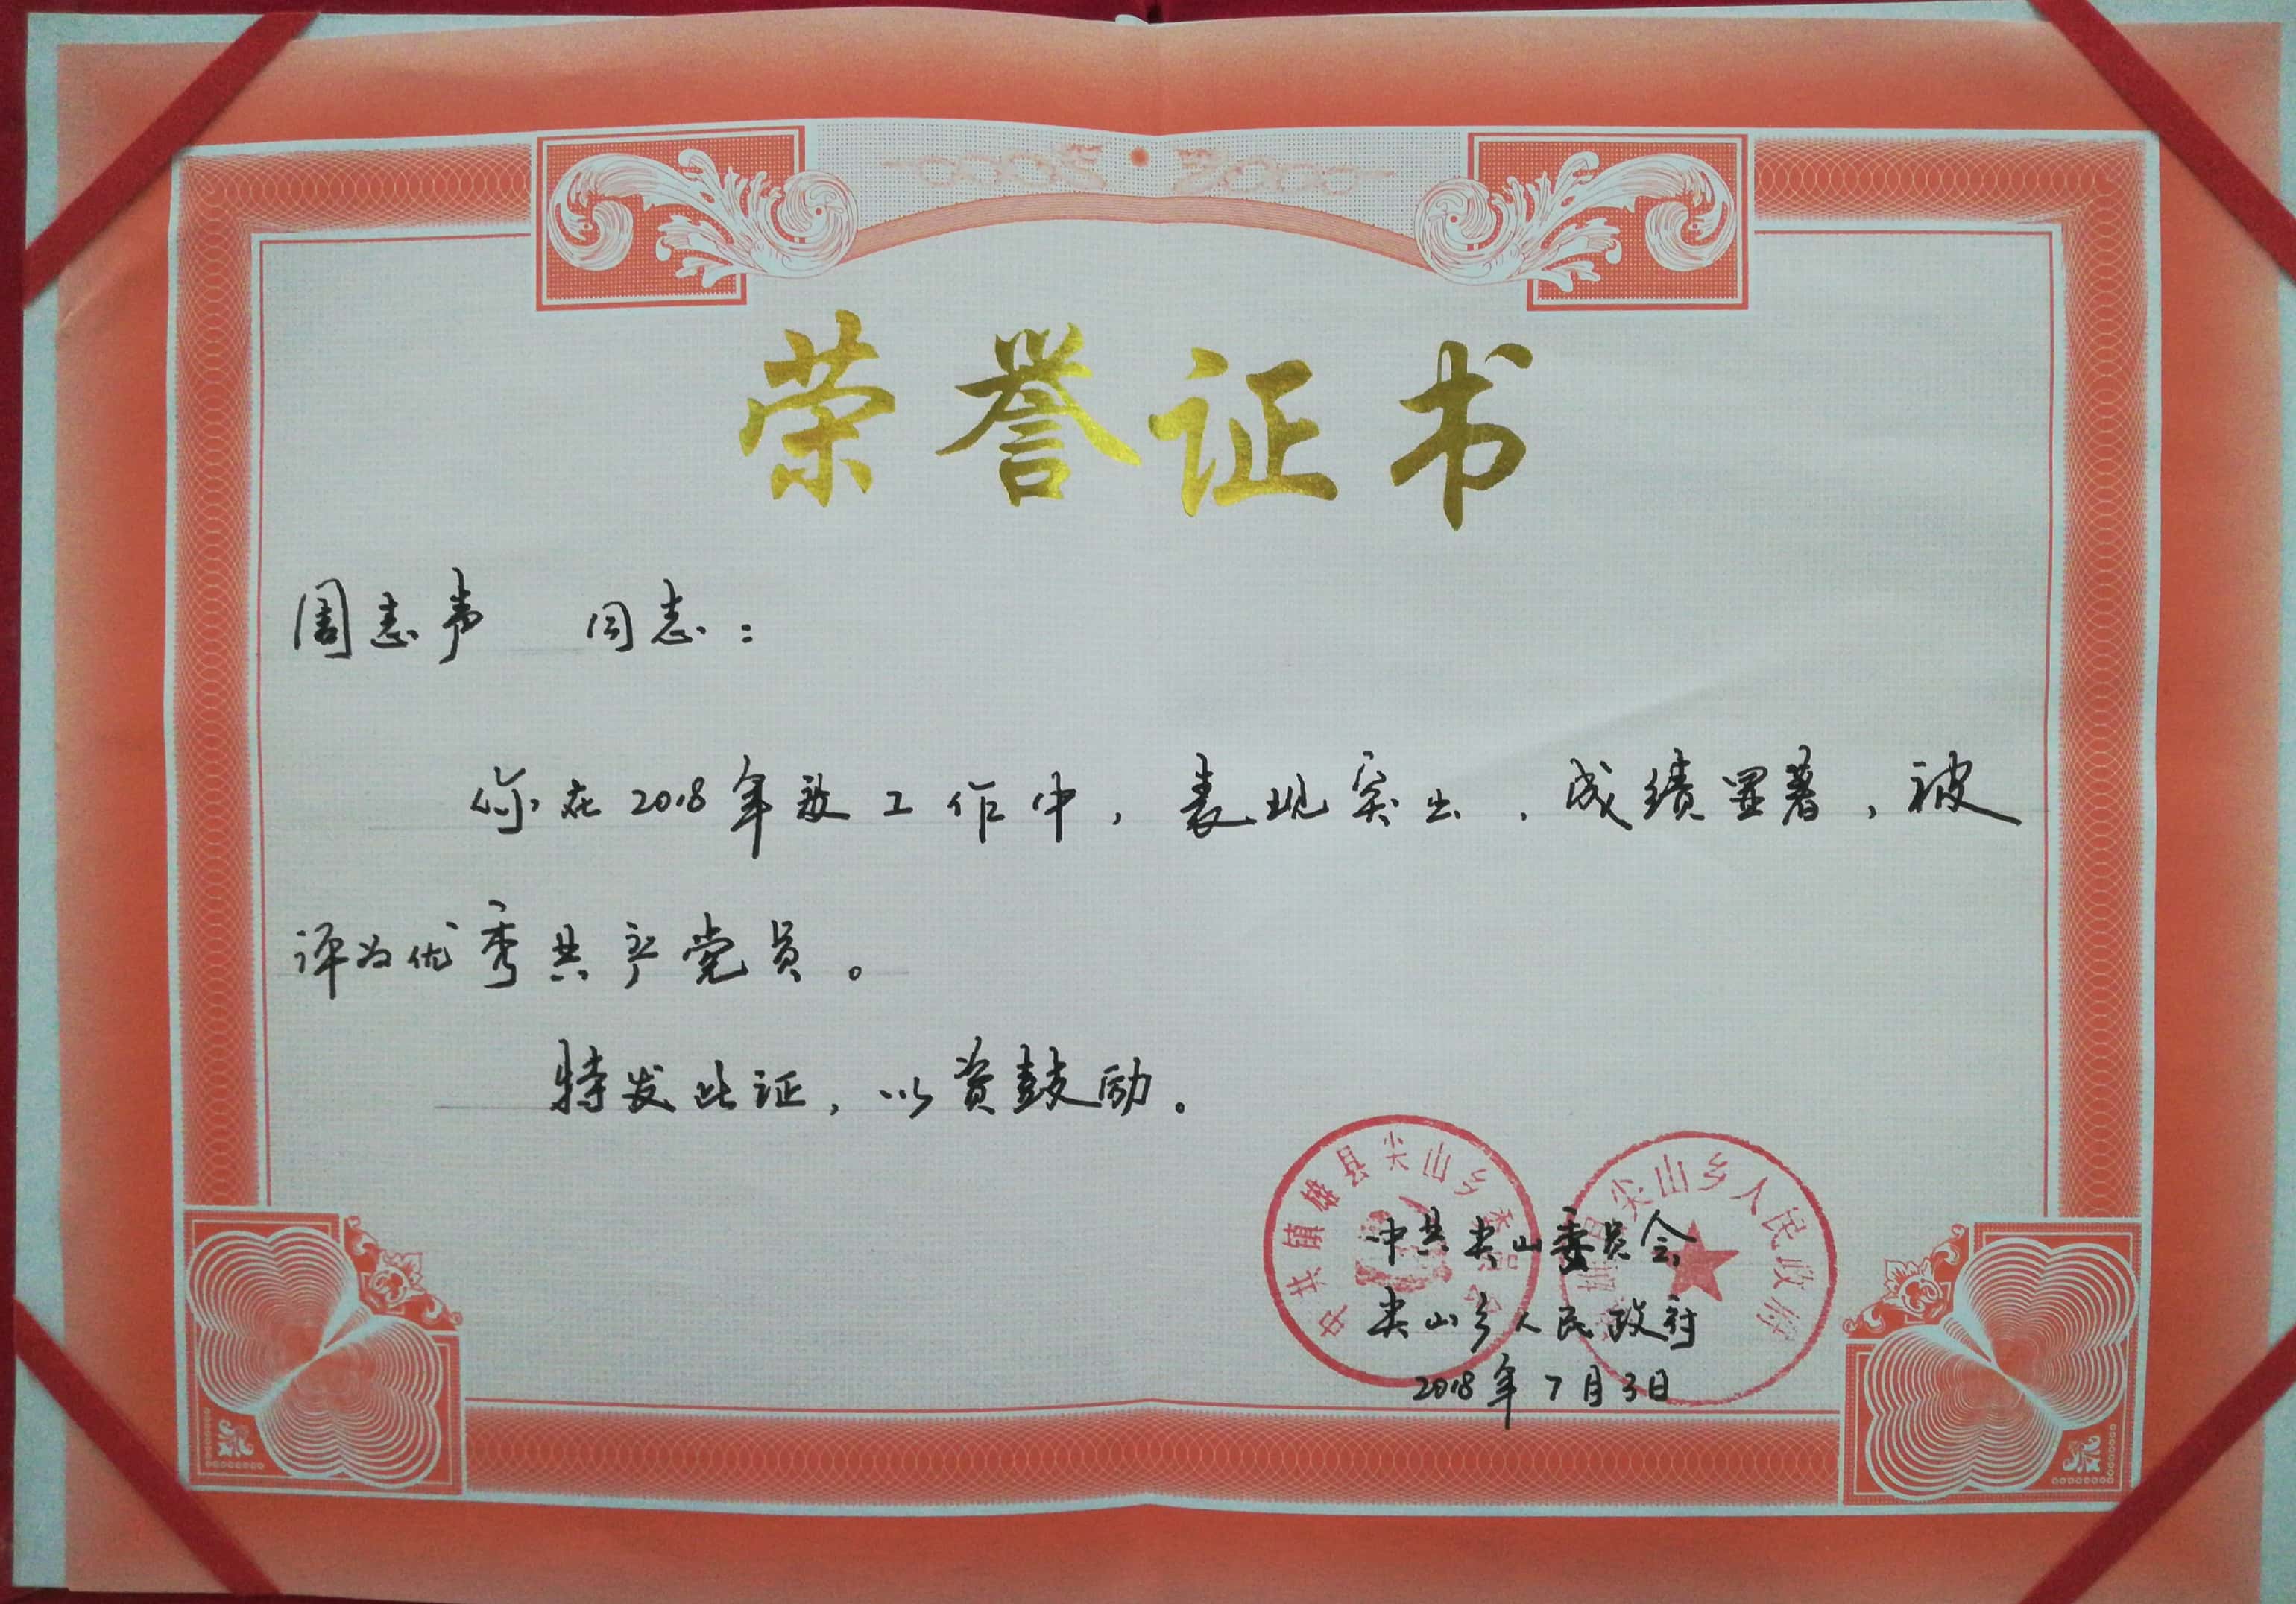 荣誉证书
周志声 同志：
你在2018年教工作中，表现突出，成绩显著，被
评为优秀共产党员。
特发此证，以资鼓励。
中共镇雄县尖山乡委员会
雄县尖山乡人民政府
中共尖山委员会
尖山乡人民政府
2018年7月3日